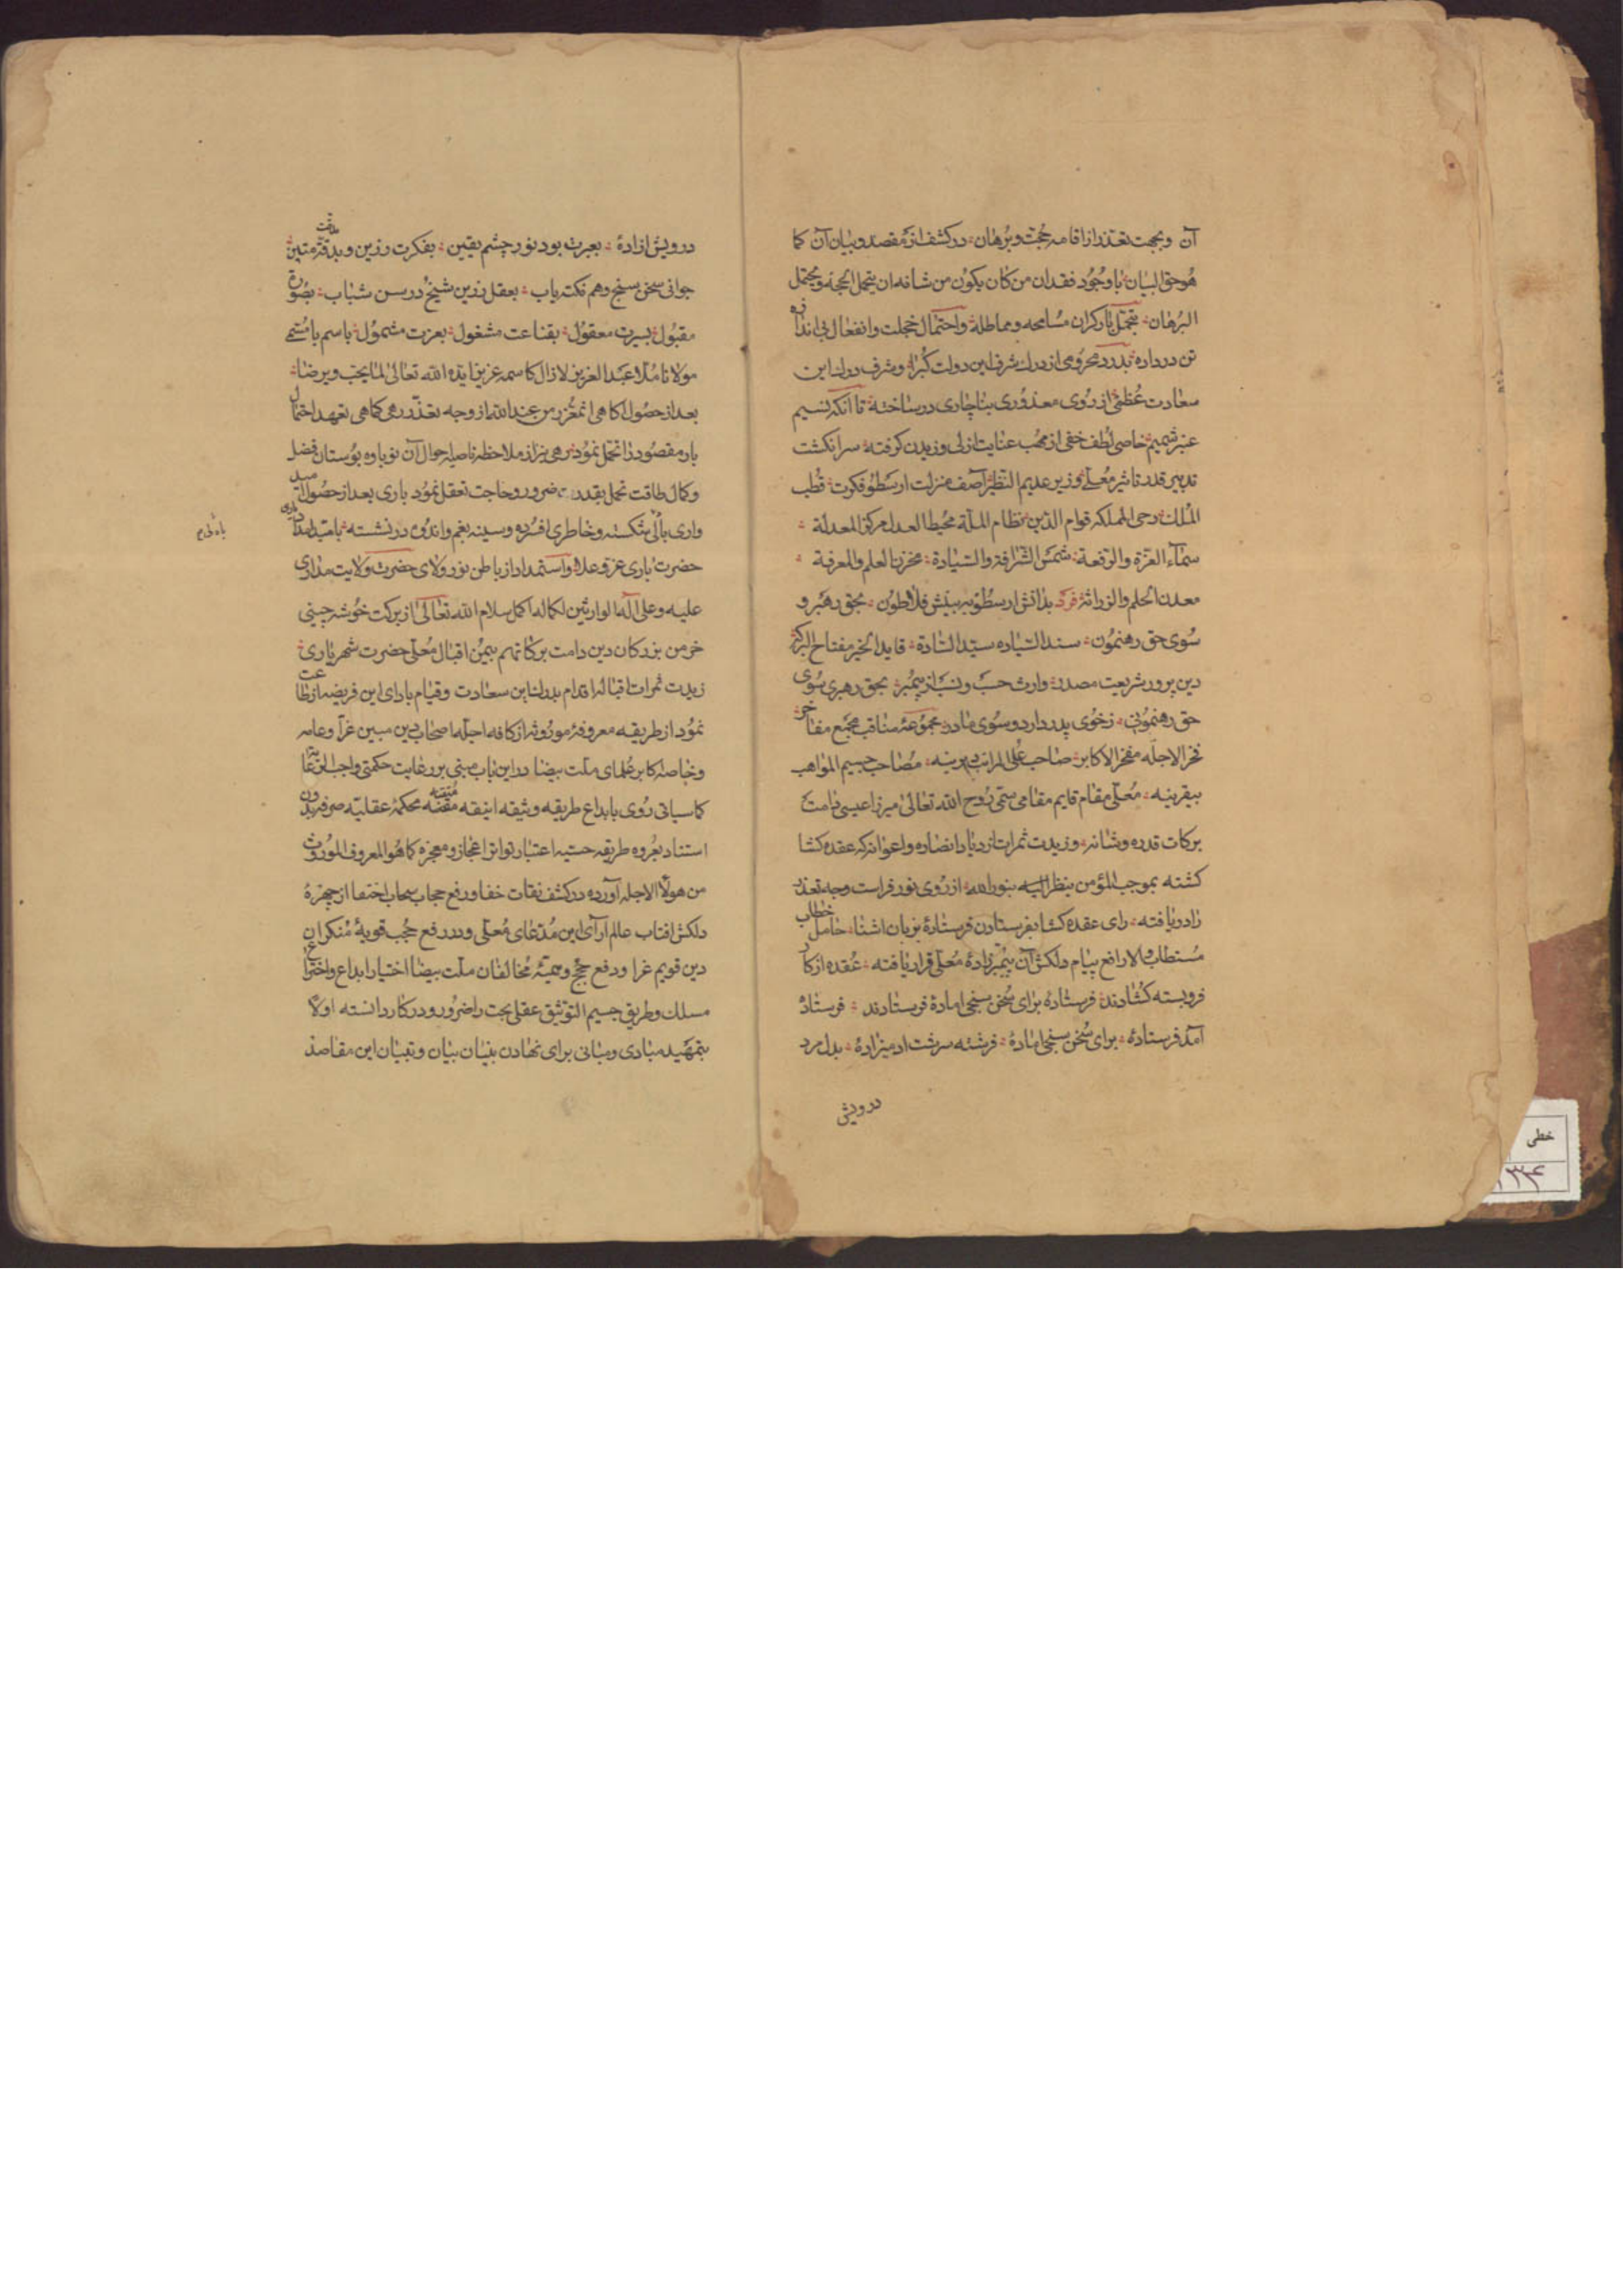 آن و بجهت تعذر از اقامه حجت و برهان در کشف از مقصد و بیان آن کما
هو حق البیان باوجود فقدان من کان یکون من شانه ان یتحمل الحجه و یحتمل
البرهان بتحمل بار کران مسامحه و مماطلة و احتمال خجلت و انفعال بی اندازه
تن در داده بدرد محرومی از درك شرف این دولت کبرا و شرف درك این
سعادت عظمی از روی معذوری بناچاری در ساخته تا آنکه نسیم
عنبر شمیم خاصی لطف خفی از مهب عنایت ازلی وزیدن کرفته سر انکشت
تدبیر قدر تاثیر معلی وزیر عدیم النظیر آصف منزلت ارسطو فکرت قطب
الملك رحی المملکه قوام الدین نظام الملة محیط العدل مرکز المعدلة
سماء العزة والرفعة شمس الشرافة والسیادة مخزن العلم والمعرفة
معدن الحلم والوراثة فرد بدانش ارسطو به بینش فلاطون بحق رهبر و
سوی حق رهنمون سند السیاده سید السادة قاید الخیر مفتاح البرکة
دین پرور شریعت مصدر وارث حسب و نسب از پیمبر بحق رهبری سوی
حق رهنمونی زخوی پدر دارد و سوی مادر مجموعهٔ مناقب مجمع مفاخر
فخر الاجله مفخر الاکابر صاحب علی المراتب دیرینه مصاحب جسیم المواهب
بیقرینه معلی مقام قایم مقامی سمی روح الله تعالی میرزا عیسی دامت
برکات قدره و شانه و زیدت ثمرات ازدیاد انصاره و اعوانه که عقده کشا
کشته بموجب المؤمن ینظر الیه بنور الله از روی نور فراست وجه تعذر
را دریافته رای عقده کشا بفرستادن فرستادهٔ بزبان اشنا حامل خطاب
مستطاب والا رافع پیام دلکش آن پیمبر زادهٔ معلی قرار یافته عقده از کار
فروبسته کشادند فرستاده برای سخن سنجی امادهٔ فرستادند فرستاده
آمد فرستادهٔ برای سخن سنجی امادهٔ فرشته سرشت ادمیزادهٔ بدل مرد
درویشی
درویش ازادهٔ بعبرت بود نور چشم یقین بفکرت رزین و بدقة متین
جوانی سخن سنج و هم نکته یاب بعقل رزین شیخ در سن شباب بصورة
مقبول بسیرت معقول بقناعت مشغول بعزت مشمول باسم با مسمی
مولانا ملا عبد العزیز لازال کاسمه عزیزا ایده الله تعالی لما یحب و یرضا
بعد از حصول اکاهی من عند الله از وجه تعذر رهی کماهی تعهد احتمال
بار مقصود را تحمل نمود رهی نیز از ملاحظه ناصیه حوال آن نوباوه بوستان فضل
و کمال طاقت تحمل بقدر ضرور و حاجت تعقل نمود باری بعد از حصول امید
واری با شکسته و خاطری افسرده و سینه بغم و اندوه در نشسته بامید امداد
حضرت باری عز و علا و استمداد از باطن نور ولای حضرت ولایت مداری
علیه و علی آله الوارثین لکماله اکمل سلام الله تعالی از برکت خوشه چینی
خرمن بزرکان دین دامت برکاتهم بیمن اقبال معلی حضرت شهریاری
زیدت ثمرات اقباله اقدام بدرك این سعادت و قیام بادای این فریضه از طاعت
نمود از طریقه معروفهٔ موروثه از کافه اجله اصحاب دین مبین غرا و عامه
و خاصه اکابر علمای ملت بیضا در این باب مبنی بر رعایت حکمتی واجب الرعایه
کما سیاتی روی بابداع طریقه وثیقه انیقه متقنه محکمهٔ عقلیه صرفه بدون
استناد بعروه طریقه حسیه اعتبار تواتر اعجاز و معجزه کما هو المعروف الموروث
من هولاء الاجله آورده در کشف نقاب خفا و رفع حجاب سحاب اختفا از چهرهٔ
دلکش افتاب عالم ارآی این مدعای معلی و در رفع حجب قویهٔ منکران
دین قویم غرا و دفع حجج وهمیهٔ مخالفان ملت بیضا اختیار ابداع و اختراع
مسلك و طریق جسیم التوثیق عقلی بحت را ضرور و در کار دانسته اولا
بتمهید مبادی و مبانی برای نهادن بنیان بیان و تبیان این مقاصد
خطی
۱۳۴